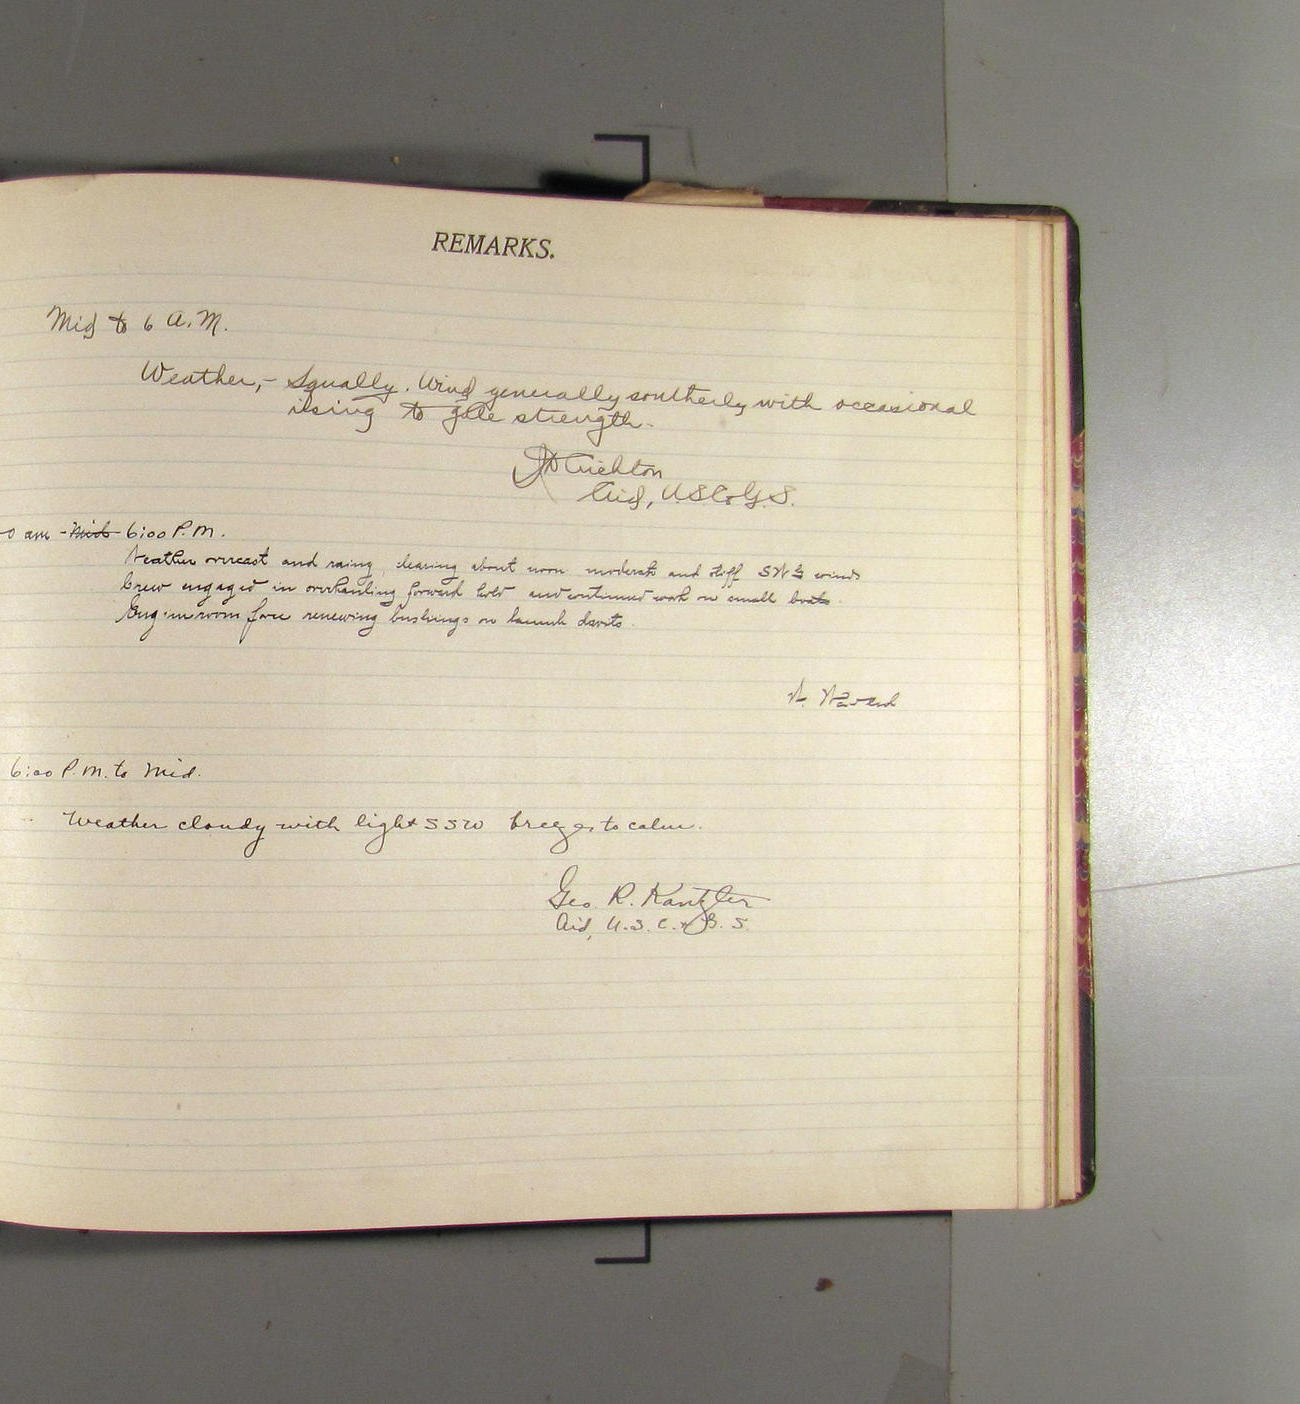 REMARKS.
Mid to 6 A.M.
Weather,- Squally. Wind generally southerly with occasional
rising to gale strength.
Crichton
Aid, U.S.C.&G.S.
0 am - Mid 6:00 P.M.
Weather overcast and raining, clearing about noon moderate and stiff winds
Crew engaged in overhauling forward hold and continued work on small boats.
Engineroom force renewing bushings on launch davits.
6:00 P.M. to Mid.
Weather cloudy with light SSW breezes to calm.
Geo. R. Kantzler
Aid, U.S.C.&G.S.